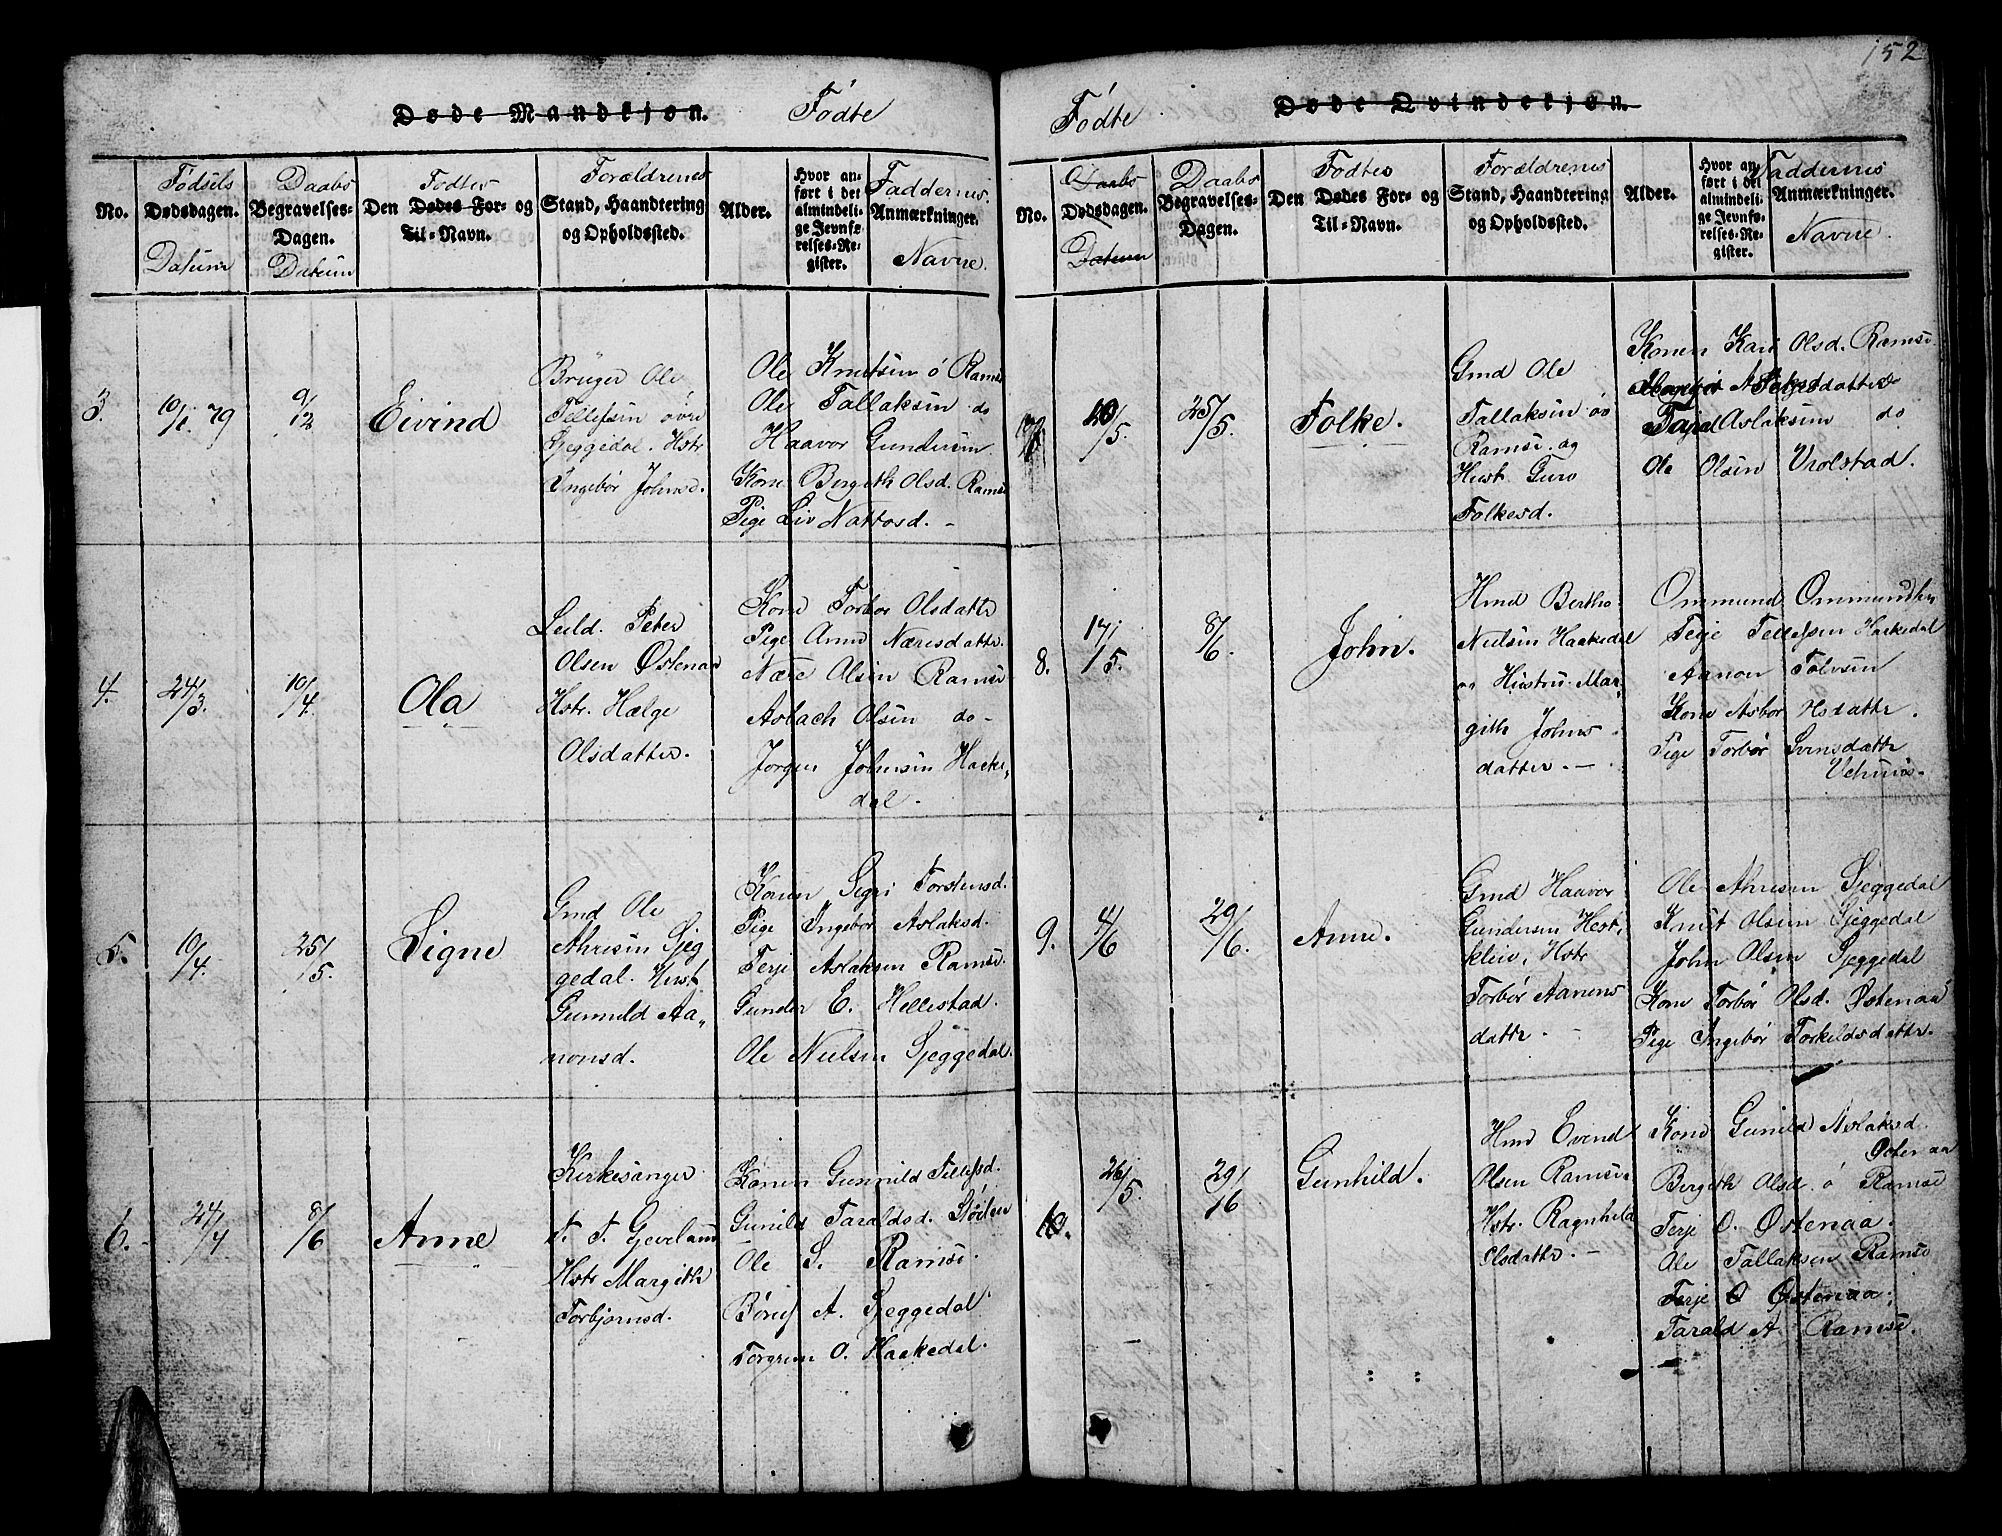 152
Døde Mandkjøn. Fødte
No.
Fødsels
Dødsdagen.
Datum
Daabs
Begravelses-
Dagen.
Datum
Fødtes
Den Dødes For- og
Til-Navn.
Forældrenes
Stand, Haandtering
og Opholdssted.
Alder.
Hvor an-
ført i det
almindeli-
ge Jevnfø-
relses-Re-
gister.
Faddernes
Anmærkninger.
Navne.
3.
10/1. 79
9/12
Eivind
Brüger Ole
Tellefsen øvre
Sjeggedal. Hstr
Ingebor Johnsd.
Ole Knutsen ö Ramse
Ole Tallaksen do
Haavor Gundersen
Kone Bergith Olsd. Ramse
Pige Liv Nattosd. -
4.
24/3.
10/4.
Ola
Leild. Peter
Olsen Østenaa
Hstr. Hælge
Olsdatter.
Kone Torbor Olsdattr
Pige Anne Næresdattr.
Nære Olsen Ramse
Aslach Olsen do-
Jörgen Johnsen Hacke-
dal.
5.
10/4.
25/5.
Signe
Gmd Ole
Ahresen Sjeg
gedal. Hust.
Gunnild Aa„
nonsd.
Konen Sigri Torstensd.
Pige Ingebor Aslaksd.
Terje Aslaksen Ramse.
Gunder E. Hellestad.
Ole Nielsen Sjeggedal.
6.
24/4
8/6
Anne
Kirkesanger
T. T. Gjevelund
Hstr Margith
Torbjornsd.
Konen Gunnild Tellefsd.
Gunild Taraldsd. Stöilen
Ole S. Ramse.
A. Sjeggedal
Torgrim O. Haakedal.
Fødte Døde Qvindekjøn.
No.
Daabs
Dødsdagen.
Datum
Daabs
Begravelses-
Dagen.
Fodtes
Den Dødes For- og
Til-Navn.
Forældrenes
Stand, Haandtering
og Opholdssted.
Alder.
Hvor an-
ført i det
almindeli-
ge Jevnfø-
relses-Re-
gister.
Faddernes
Anmærkninger.
Navne.
7.
10/5.
25/5.
Folke.
Gmd Ole
Tallaksen öv
Ramse. og
Hust. Guro
Folkesd.
Konen Kari Olsd. Ramse
Aslaksen do
Ole Olsen Vrolstad.
8.
17/5.
8/6.
John.
Hmd Bertho
Nielsen Haakedal
Hustru Mar„
gith Johns
datter. -
Ommund Ommundsen
Terje Tellefsen Haakedal
Aanon Tolvsen
Kone Asbor Olsdattr.
Pige Torbör Svensdattr
9.
4/6
29/6.
Anne.
Gmd Haavor
Gundersen Hest„
kleiv, Hstr
Torbör Aanens
dattr. -
Ole Ahresen Sjeggedal
Knut Olsen Sjeggedal
John Olsen Sjeggedal
Kone Torbör Olsd. Østenaa
Pige Ingebör Torkildsdattr.
10.
26/5.
29/6
Gunhild.
Hmd Evind
Olsen Ramse
Hstr. Ragnhild
Olsdattr. -
Kone Gunild Aslaksd.
Østenaa
Bergith Olsd. ö Ramse
Terje O. Østenaa.
Ole Tallaksen Ramse
Terje O Østenaa.
Tarald A. Ramse.